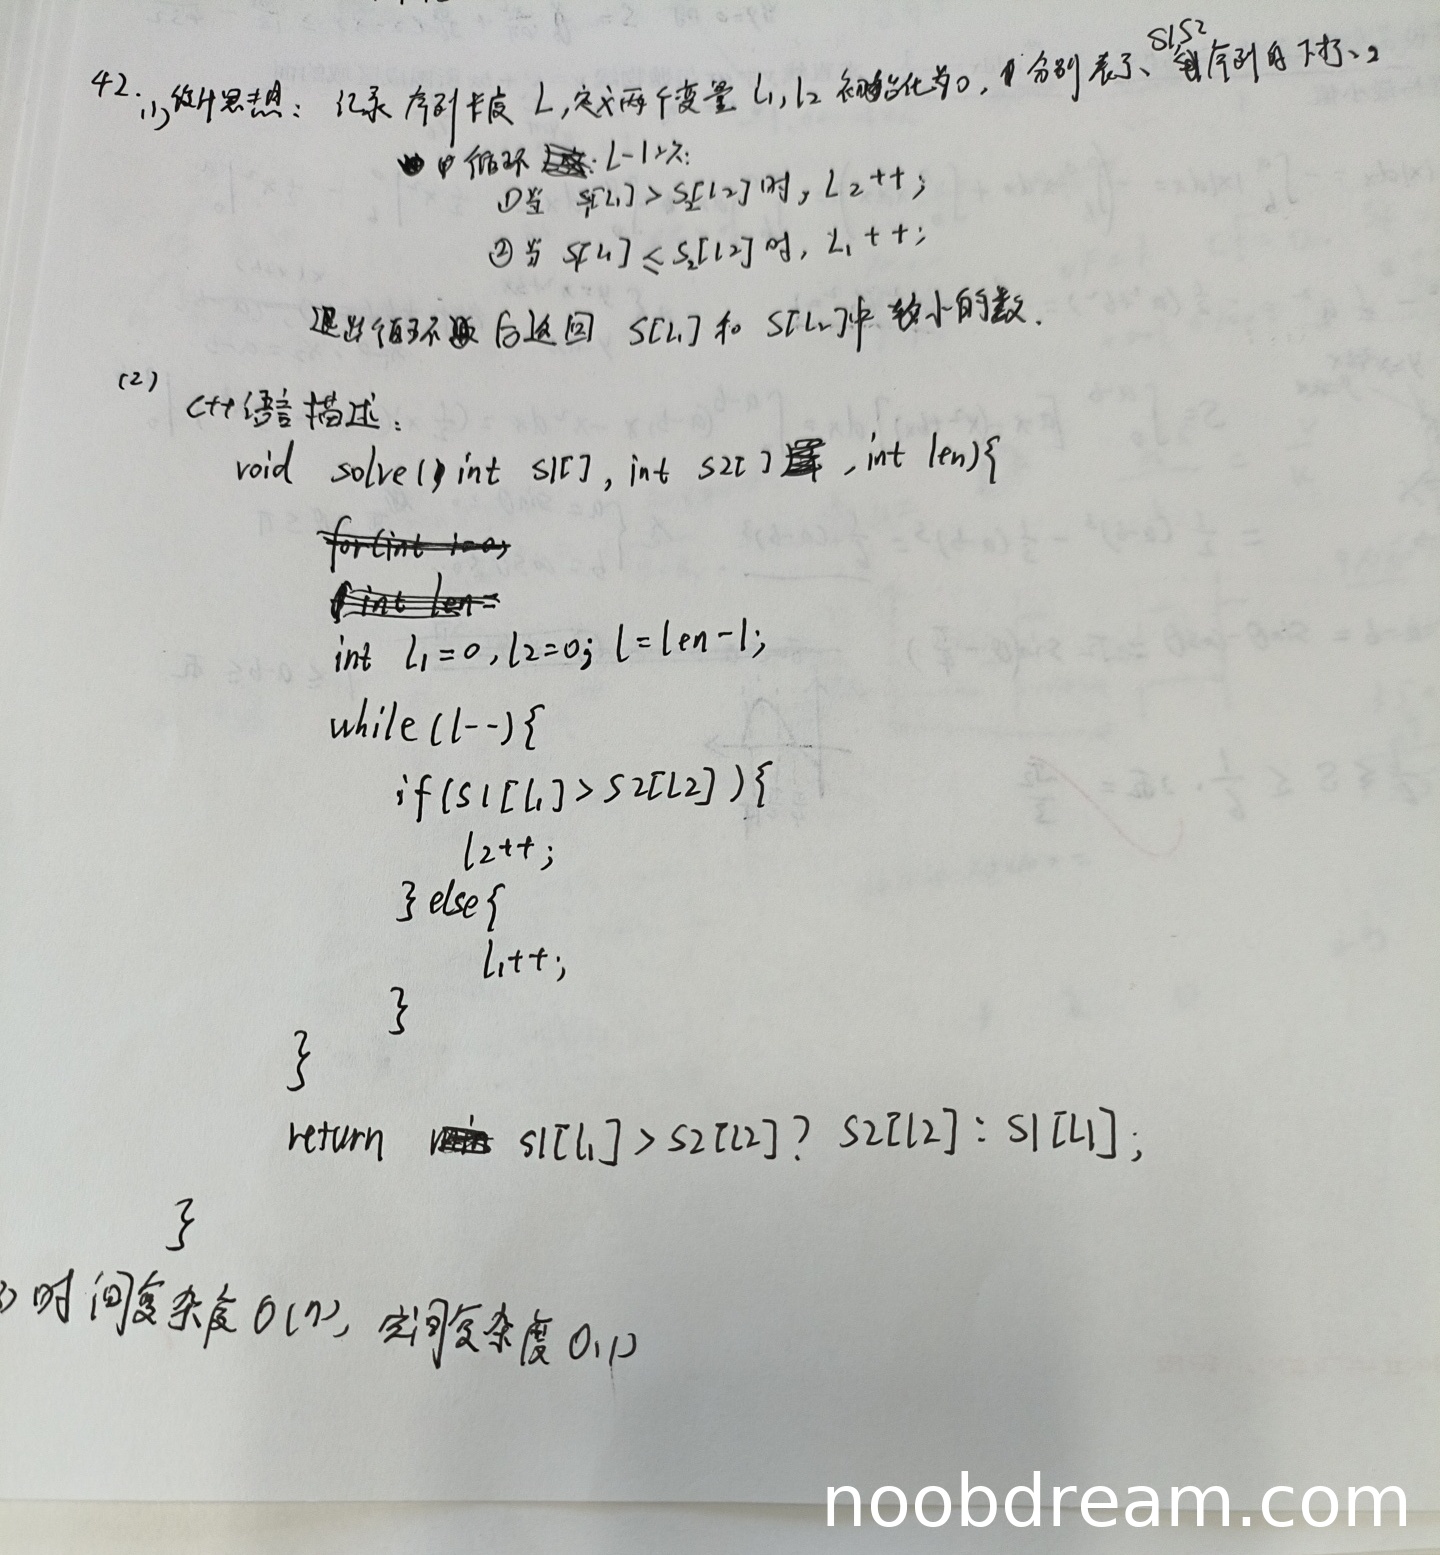 42.
(1)设计思想: 记录序列长度 L,定义两个变量 L1, l2 初始化为0, 分别表示 S1,S2 序列的下标、
循环 L-1次:
①当 S1[L1] > S2[L2] 时, L2++;
②当 S1[L1] ≤ S2[L2] 时, L1++;
退出循环后返回 S[L1] 和 S[L2]中较小的数.
(2)
C++语言描述:
void solve(int S1[], int S2[], int len){
for(int i=0;
int len=
int L1=0, l2=0; l=len-1;
while(l--){
if(S1[L1]>S2[L2]){
l2++;
}else{
l1++;
}
}
return S1[L1]>S2[L2]? S2[L2]:S1[L1];
}
) 时间复杂度O(n), 空间复杂度O(1)
noobdream.com